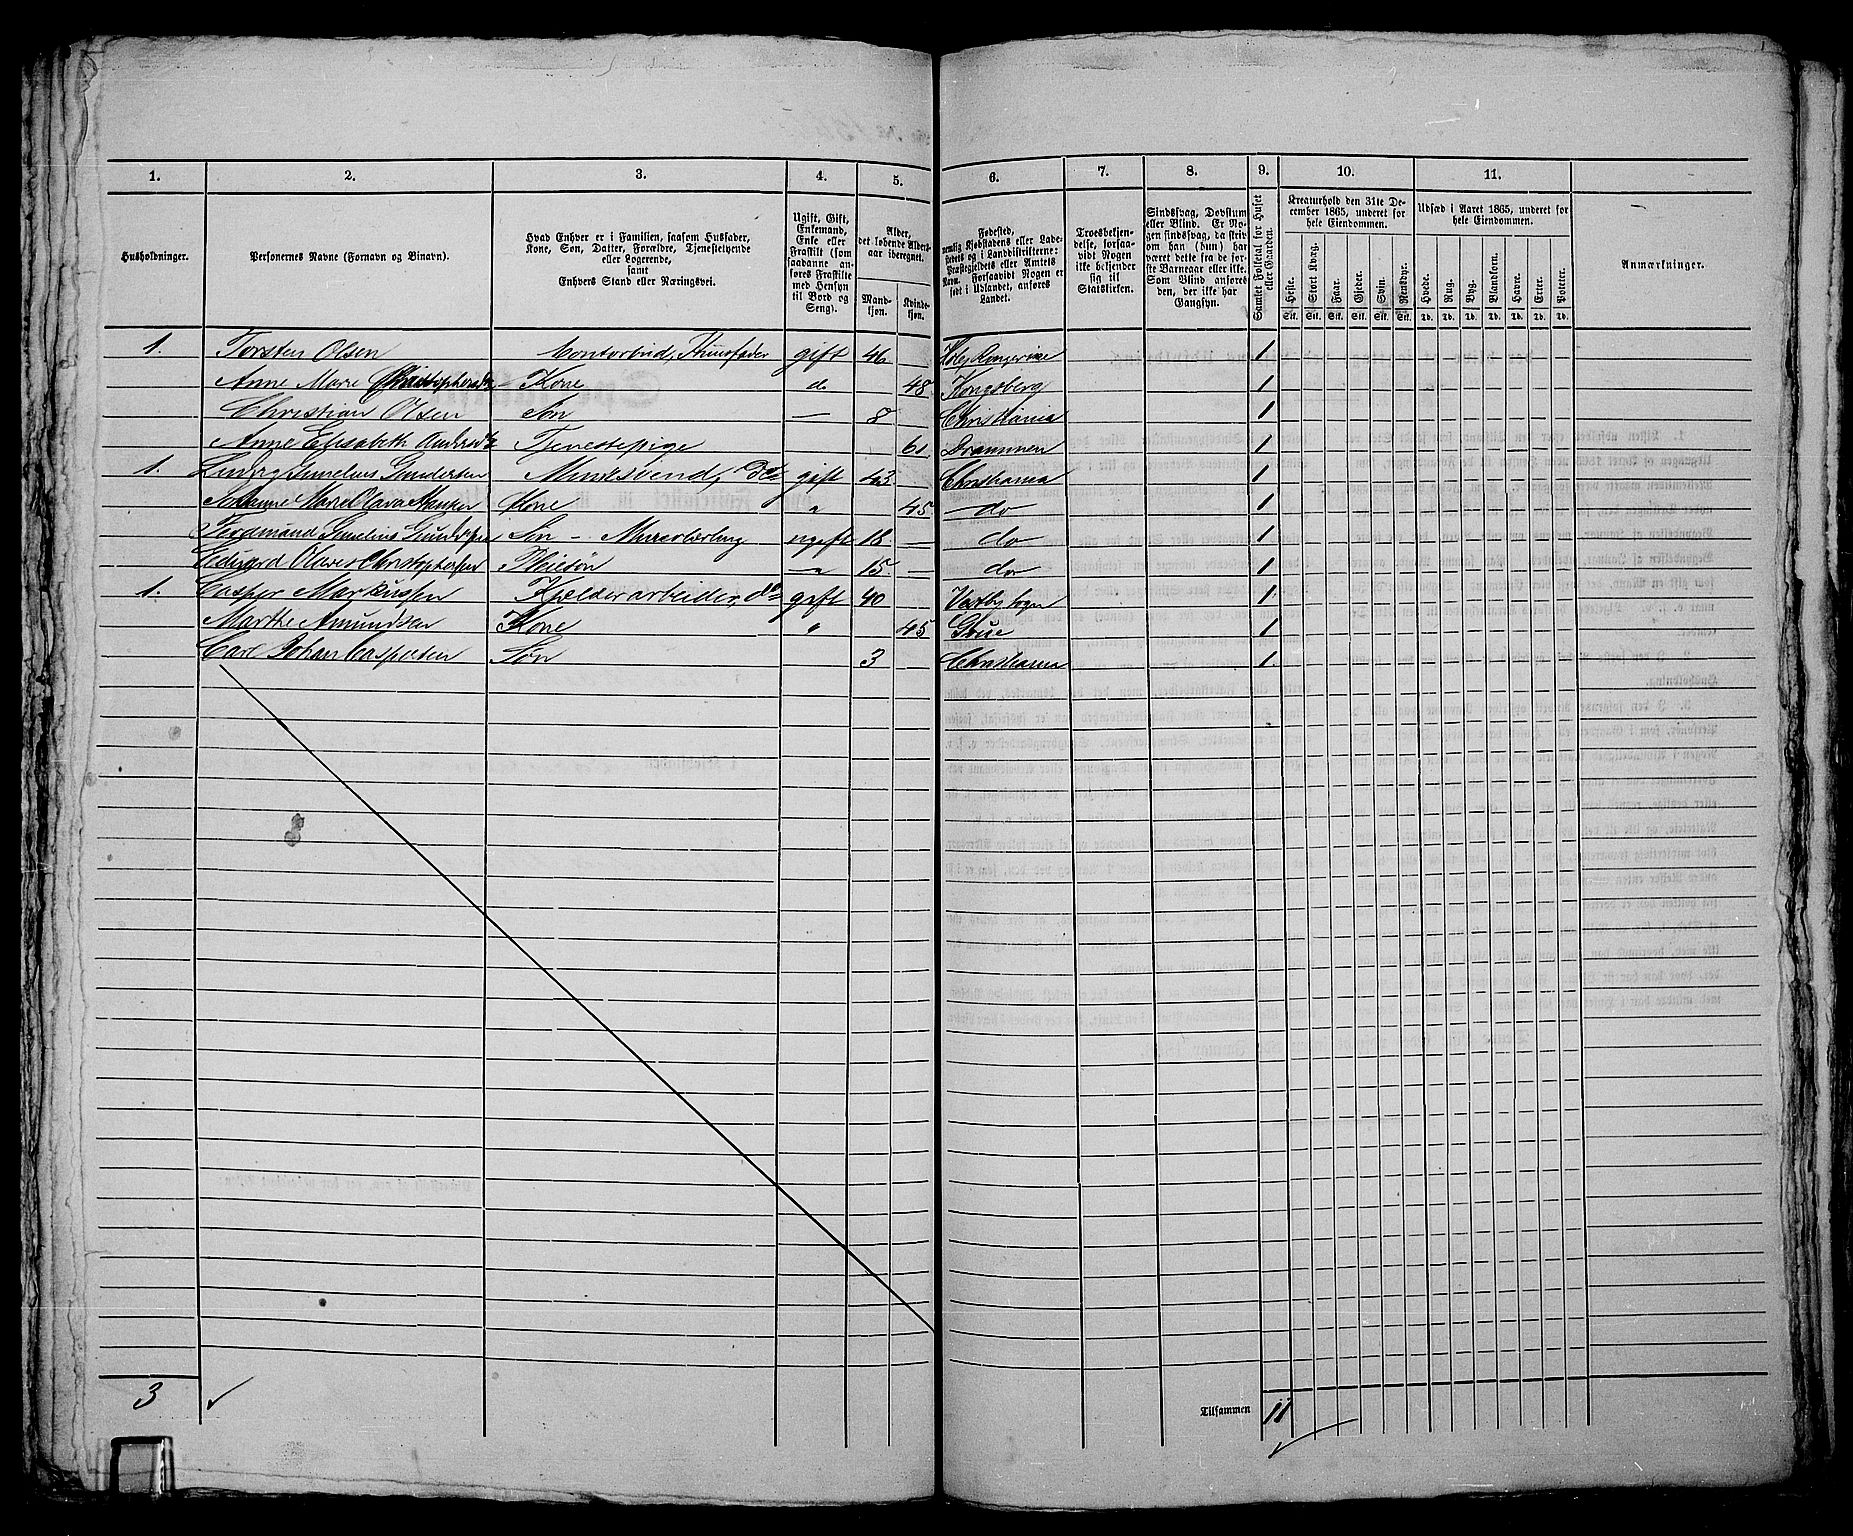 1. 2. 3. 4. 5. 6. 7. 8. 9. 10. 11.
Husholdninger.
Personernes Navne (Fornavn og Binavn).
Hvad Enhver er i Familien, saasom Husfader, Kone, Søn, Datter, Forældre, Tjenestetyende eller Logerende, samt Enhvers Stand eller Næringsvei.
Ugift, Gift, Enkemand, Enke eller Fraskilt (som saadanne anføres Fraskilte med Hensyn til Bord og Seng).
Alder, det løbende Alders-aar iberegnet.
Mand-kjøn. Kvinde-kjøn.
Fødested, nemlig Kjøbstadens eller Ladestedets og i Landdistrikterne: Præstegjeldets eller Amtets Navn. Forsaavidt Nogen er født i Udlandet, anføres Landet.
Troesbekjendelse, forsaavidt Nogen ikke bekjender sig til Statskirken.
Sindssvag, Døvstum eller Blind. Er Nogen sindssvag, da skriv om han (hun) har været dette fra de første Barneaar eller ikke. Som Blind anføres den, der ikke har Gangsyn.
Samlet Folketal for Huset eller Gaarden.
Kreaturhold den 31te December 1865, underet for hele Eiendommen.
Heste. Stort Kvæg. Faar. Gjeder. Svin. Rensdyr.
Stk. Stk. Stk. Stk. Stk. Stk.
Udsæd i Aaret 1865, underet for hele Eiendommen.
Hvede. Rug. Byg. Blandkorn. Havre. Erter. Poteter.
Td. Td. Td. Td. Td. Td. Td.
Anmærkninger.
1. Torsten Olsen Contorbud, Huusfader gift 46 — 1
Anne Marie Kone do 48 Kongsberg 1
Christian Olsen Søn — 8 — Christiania 1
Anne Elisabeth Tjenestepige 61 Drammen 1
1. Ludvig Gundersen Muursvend, do gift 43 — Christiania 1
Johanne Marie Olava Kone " 45 do 1
Ferdinand Søn — Murerlærling ugift 18 — do 1
Edvard Olaves Christophersen Pleiesøn " 15 — do 1
1. Casper Markussen Kjelderarbeider, do gift 40 — Vestby Sogn 1
Marthe Amundsen Kone " 45 Grue 1
Carl Johan Caspersen Søn 3 — Christiania 1.
3
Tilsammen 11